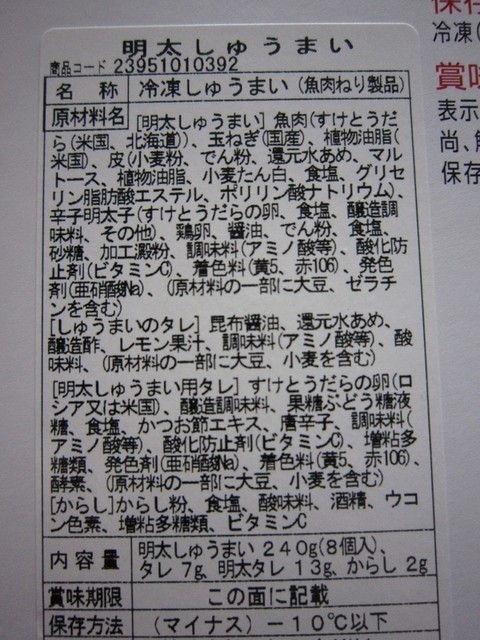 明太しゅうまい
商品コード 23951010392
名称 冷凍しゅうまい(魚肉ねり製品)
原材料名 [明太しゅうまい] 魚肉(すけとうだ
ら(米国、北海道))、玉ねぎ(国産)、植物油脂(
米国)、皮(小麦粉、でん粉、還元水あめ、マル
トース、植物油脂、小麦たん白、食塩、グリセ
リン脂肪酸エステル、ポリリン酸ナトリウム)、
辛子明太子(すけとうだらの卵、食塩、醸造調
味料、その他)、鶏卵、醤油、でん粉、食塩、
砂糖、加工澱粉、調味料(アミノ酸等)、酸化防
止剤(ビタミンC)、着色料(黄5、赤106)、発色
剤(亜硝酸Na)、(原材料の一部に大豆、ゼラチ
ンを含む)
[しゅうまいのタレ] 昆布醤油、還元水あめ、
醸造酢、レモン果汁、調味料(アミノ酸等)、酸
味料、(原材料の一部に大豆、小麦を含む)
[明太しゅうまい用タレ] すけとうだらの卵(ロ
シア又は米国)、醸造調味料、果糖ぶどう糖液
糖、食塩、かつお節エキス、唐辛子、調味料(
アミノ酸等)、酸化防止剤(ビタミンC)、増粘多
糖類、発色剤(亜硝酸Na)、着色料(黄5、赤106)、
酵素、(原材料の一部に大豆、小麦を含む)
[からし]からし粉、食塩、酸味料、酒精、ウコ
ン色素、増粘多糖類、ビタミンC
内容量 明太しゅうまい 240g(8個入)、
タレ 7g、明太タレ 13g、からし 2g
賞味期限 この面に記載
保存方法 (マイナス)-10℃以下
保存
冷凍(
賞味
表示
尚、
保存